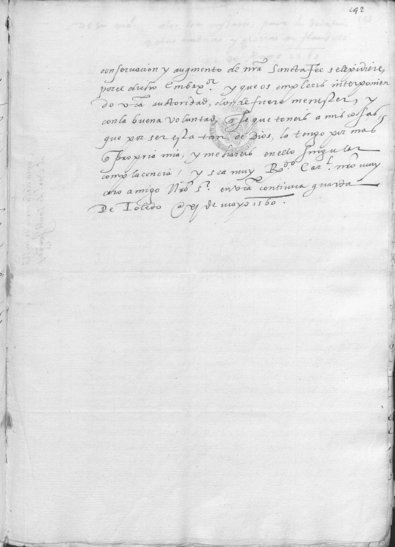 192
conservacion y augmento de nra Sancta Fee se le pidiere,
por el dicho Embaxor. y que os empleeis interponien
do vra auctoridad, donde fuere menester, y
con la buena voluntad, que teneis a mis cosas,
que por ser esta tan de Dios, la tengo por mas
propria mia, y me hareis en ello singular
complacencia, y sea muy Rdo Carl. nro muy
caro amigo Nro Sr. en vra continua guarda
De Toledo de mayo 1560.